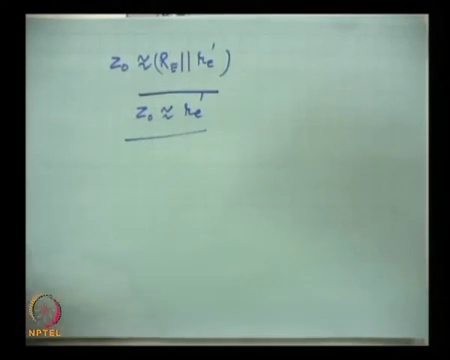 z₀ ≈ (R_E || r_e')
z₀ ≈ r_e'
NPTEL